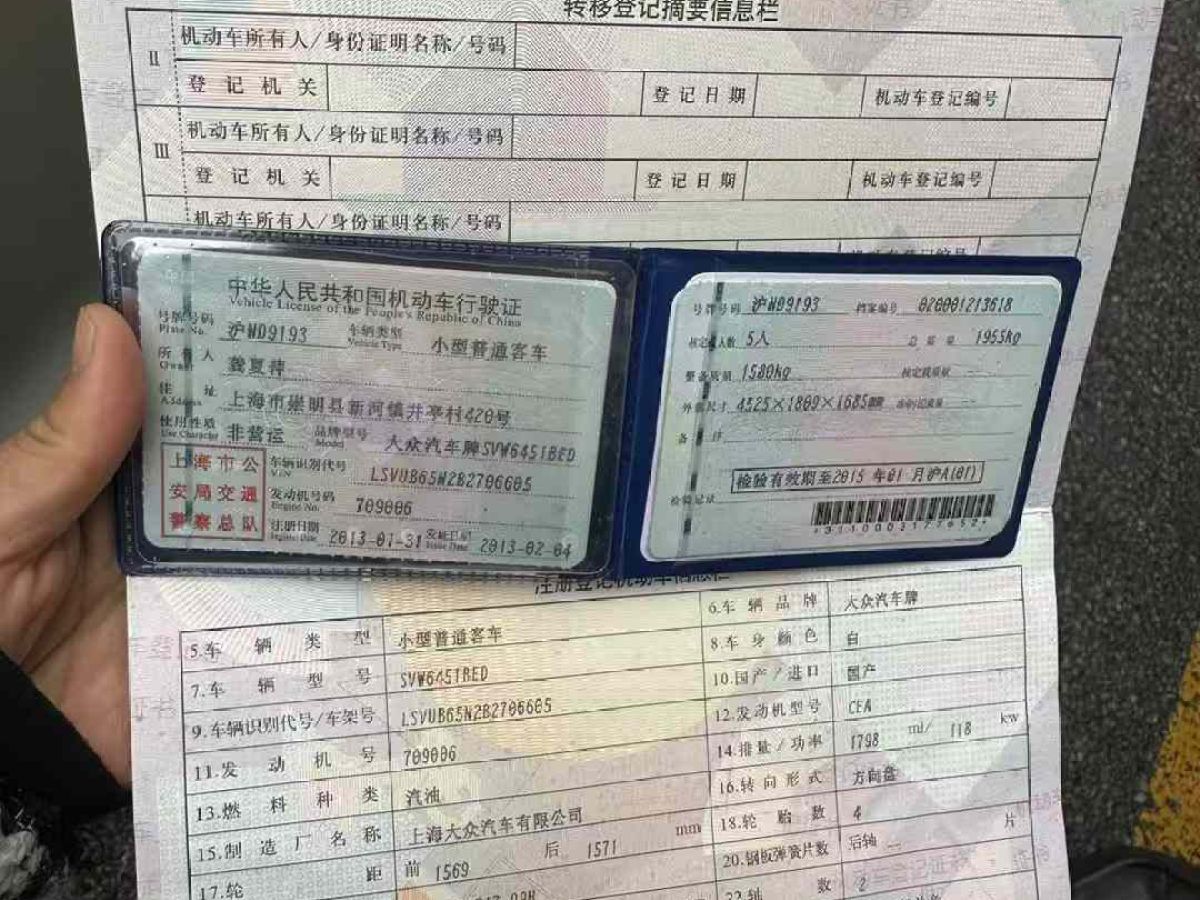 转移登记摘要信息栏
II 机动车所有人/身份证明名称/号码
登记机关 登记日期 机动车登记编号
III 机动车所有人/身份证明名称/号码
登记机关 登记日期 机动车登记编号
机动车所有人/身份证明名称/号码
中华人民共和国机动车行驶证
Vehicle License of the People's Republic of China
号牌号码 沪WD9193 车辆类型 小型普通客车
Plate No. Vehicle Type
所有人
Owner
住址 上海市崇明县新河镇井亭村420号
Address
使用性质 非营运 品牌型号 大众汽车牌SVW6451BED
Use Character Model
上海市公
安局交通
警察总队
车辆识别代号 LSVUB65N2B2706605
VIN
发动机号码 709006
Engine No.
注册日期 2013-01-31 发证日期 2013-02-04
Register Date Issue Date
号牌号码 沪WD9193 档案编号 020001213618
核定载人数 5人 总质量 1955kg
整备质量 1580kg 核定载质量 --
外廓尺寸 4525×1809×1685mm --
备注
检验有效期至2015年01月沪A(01)
检验记录
*3110003177652*
注册登记机动车信息栏
5.车辆类型 小型普通客车 6.车辆品牌 大众汽车牌
7.车辆型号 SVW6451BED 8.车身颜色 白
9.车辆识别代号/车架号 LSVUB65N2B2706605 10.国产/进口 国产
11.发动机号 709006 12.发动机型号 CEA
13.燃料种类 汽油 14.排量/功率 1798 ml/ 118 kw
15.制造厂名称 上海大众汽车有限公司 16.转向形式 方向盘
17.轮距 前 1569 后 1571 mm 18.轮胎数 4
20.钢板弹簧片数 后轴 -- 片
22.轴数 2